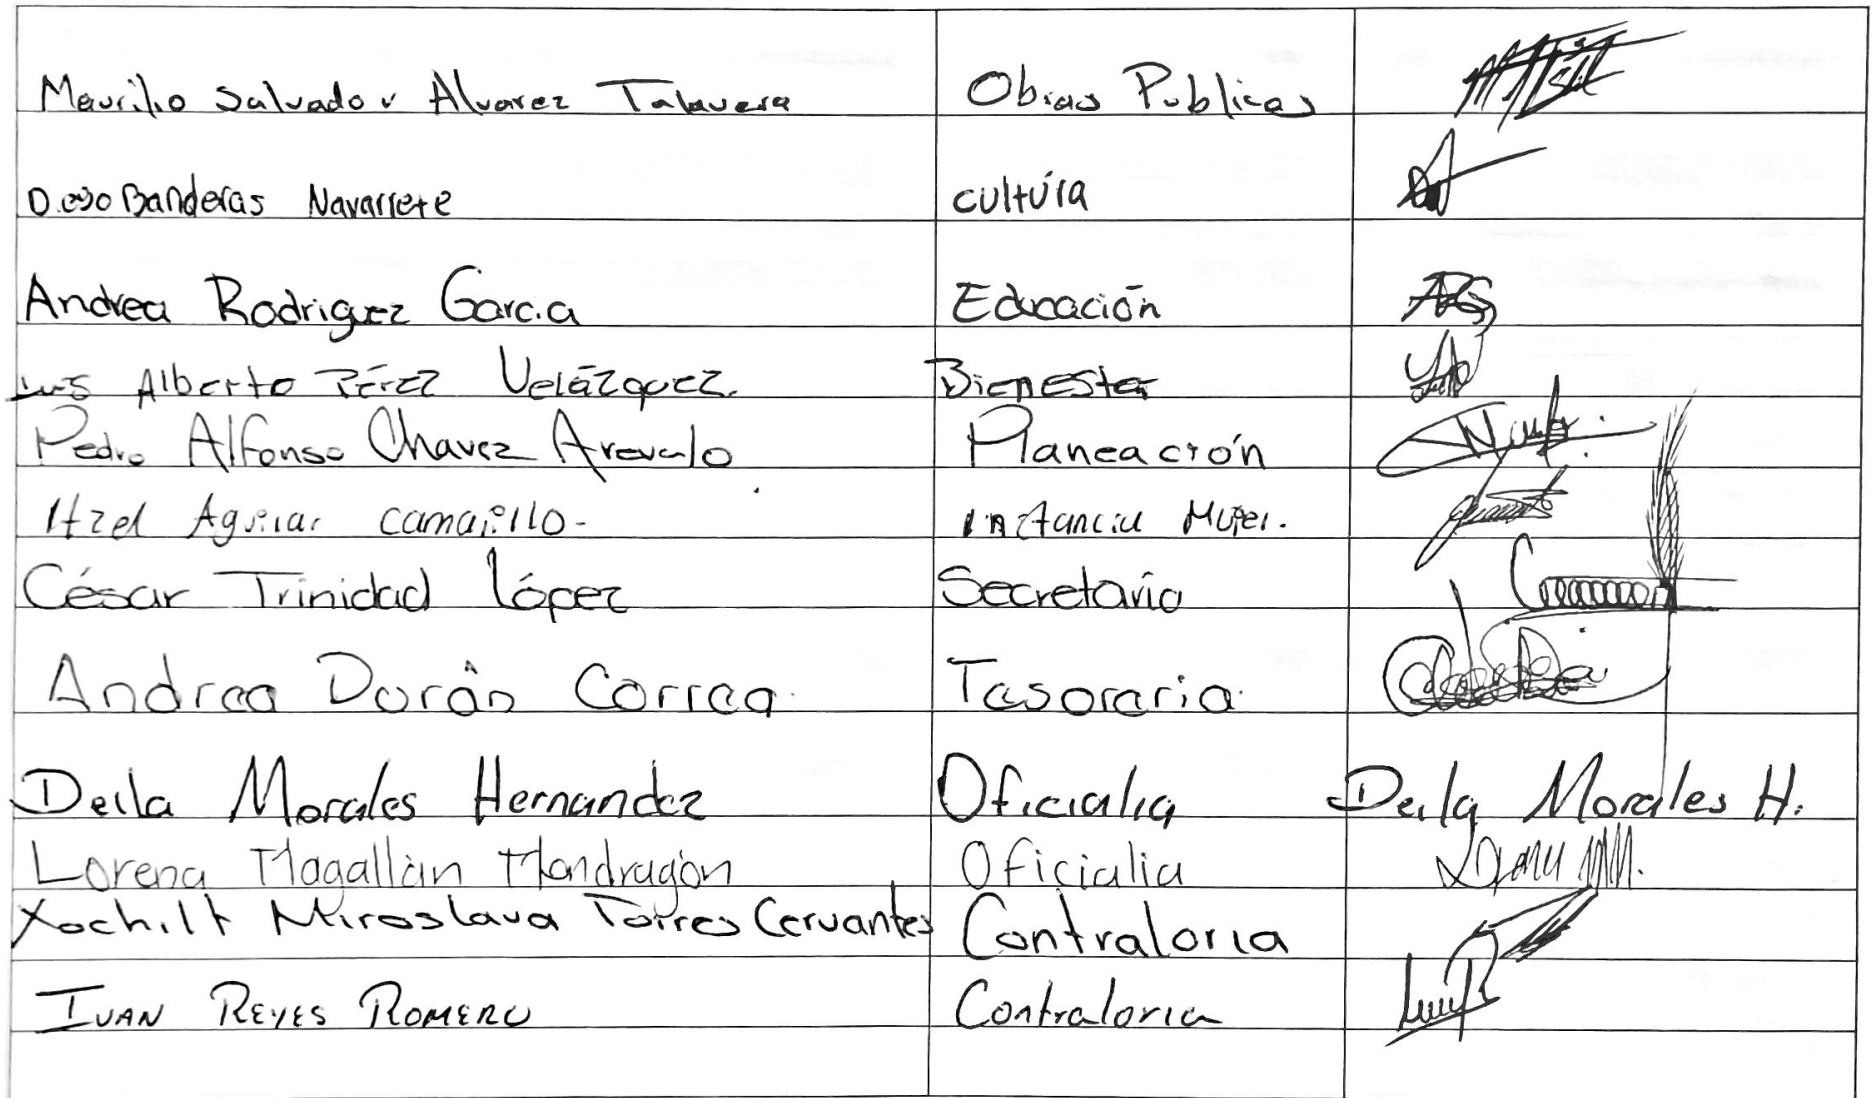 Maurilio Salvador Alvarez Talavera Obras Publicas
Diego Banderas Navarrete cultura
Andrea Rodriguez Garcia Educación
Luis Alberto Pérez Velázquez. Bienestar
Pedro Alfonso Chavez Arevalo Planeación
Itzel Aguilar camarillo- instancia Mujer.
César Trinidad López Secretario
Andrea Durán Correa. Tesoreria.
Deila Morales Hernandez Oficialia Deila Morales H.
Lorena Magallán Mondragón Oficialia
Xochilt Miroslava Torres Cervantes Contraloria
IVAN REYES ROMERO Contraloria